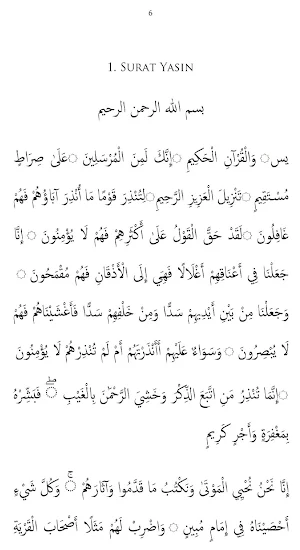 6
1. SURAT YASIN
بسم الله الرحمن الرحيم
يس ۝ وَالْقُرْآنِ الْحَكِيمِ ۝ إِنَّكَ لَمِنَ الْمُرْسَلِينَ ۝ عَلَىٰ صِرَاطٍ
مُسْتَقِيمٍ ۝ تَنْزِيلَ الْعَزِيزِ الرَّحِيمِ ۝ لِتُنْذِرَ قَوْمًا مَا أُنْذِرَ آبَاؤُهُمْ فَهُمْ
غَافِلُونَ ۝ لَقَدْ حَقَّ الْقَوْلُ عَلَىٰ أَكْثَرِهِمْ فَهُمْ لَا يُؤْمِنُونَ ۝ إِنَّا
جَعَلْنَا فِي أَعْنَاقِهِمْ أَغْلَالًا فَهِيَ إِلَى الْأَذْقَانِ فَهُمْ مُقْمَحُونَ ۝
وَجَعَلْنَا مِنْ بَيْنِ أَيْدِيهِمْ سَدًّا وَمِنْ خَلْفِهِمْ سَدًّا فَأَغْشَيْنَاهُمْ فَهُمْ
لَا يُبْصِرُونَ ۝ وَسَوَاءٌ عَلَيْهِمْ أَأَنْذَرْتَهُمْ أَمْ لَمْ تُنْذِرْهُمْ لَا يُؤْمِنُونَ
۝ إِنَّمَا تُنْذِرُ مَنِ اتَّبَعَ الذِّكْرَ وَخَشِيَ الرَّحْمَٰنَ بِالْغَيْبِ ۖ فَبَشِّرْهُ
بِمَغْفِرَةٍ وَأَجْرٍ كَرِيمٍ
إِنَّا نَحْنُ نُحْيِي الْمَوْتَىٰ وَنَكْتُبُ مَا قَدَّمُوا وَآثَارَهُمْ ۚ وَكُلَّ شَيْءٍ
أَحْصَيْنَاهُ فِي إِمَامٍ مُبِينٍ ۝ وَاضْرِبْ لَهُمْ مَثَلًا أَصْحَابَ الْقَرْيَةِ